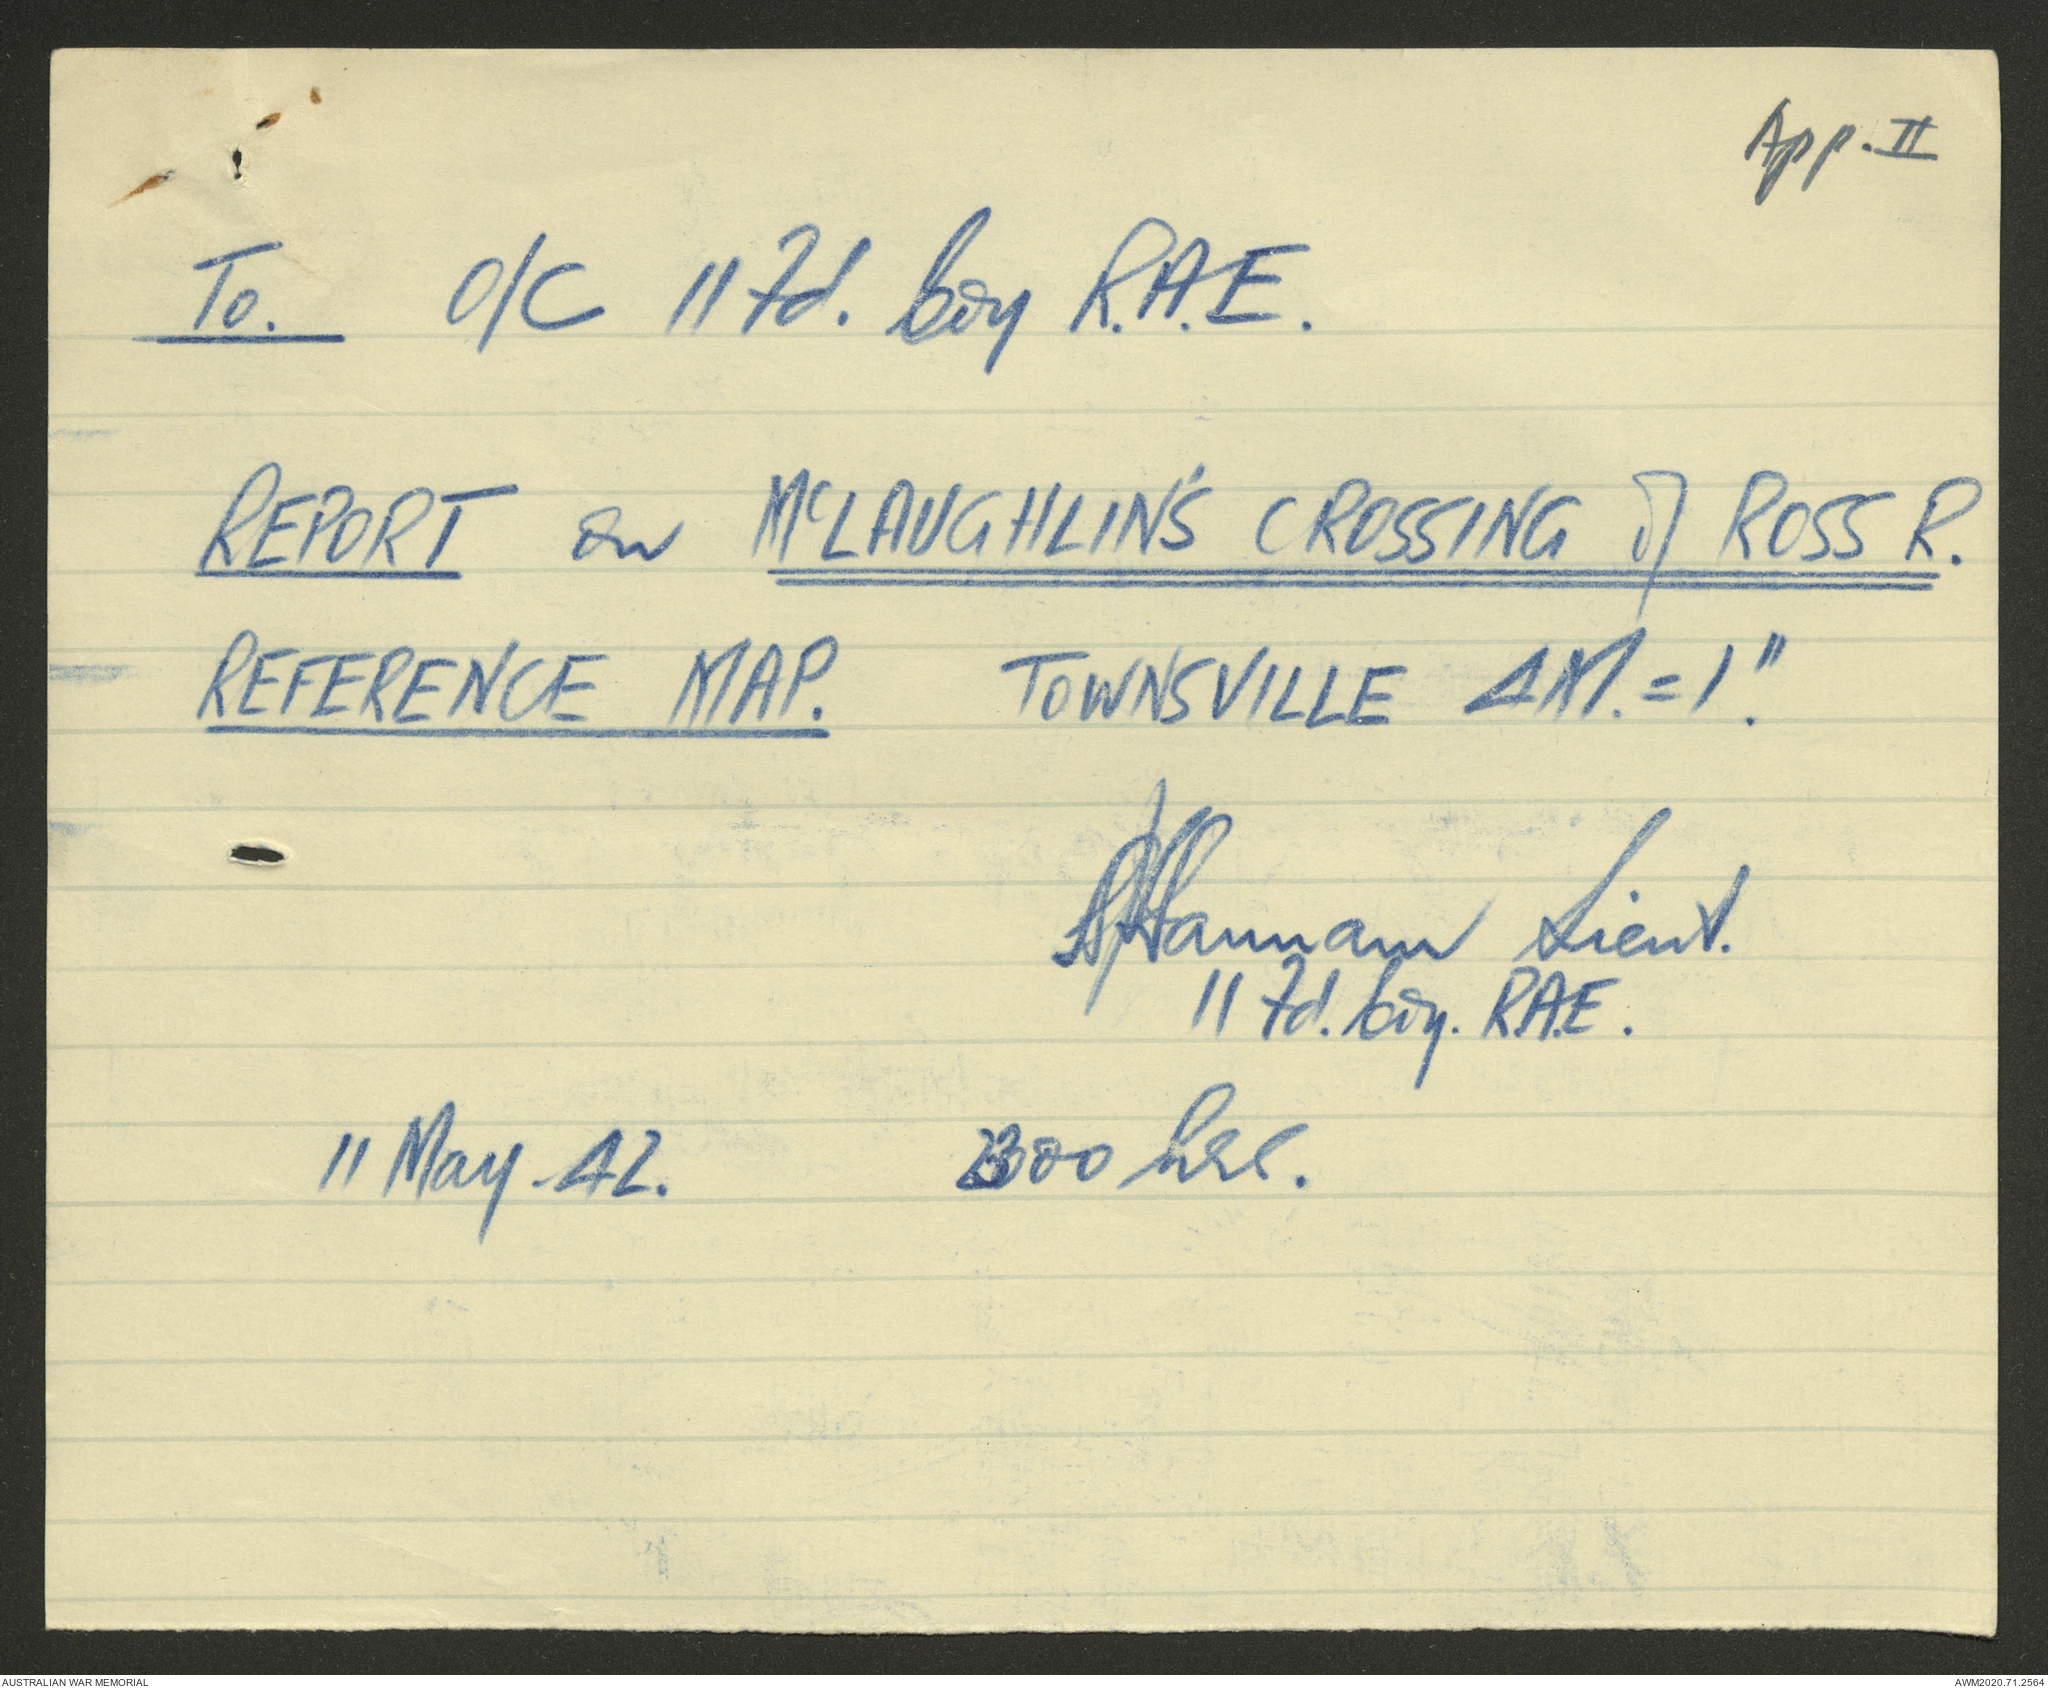 App. II
To. O/C 11 Fd. Coy R.A.E.
REPORT on McLAUGHLIN'S CROSSING of ROSS R.
REFERENCE MAP. TOWNSVILLE 4M. = 1".
Lieut.
11 Fd. Coy. R.A.E.
11 May 42. 2300 hrs.
AUSTRALIAN WAR MEMORIAL
AWM2020.71.2564